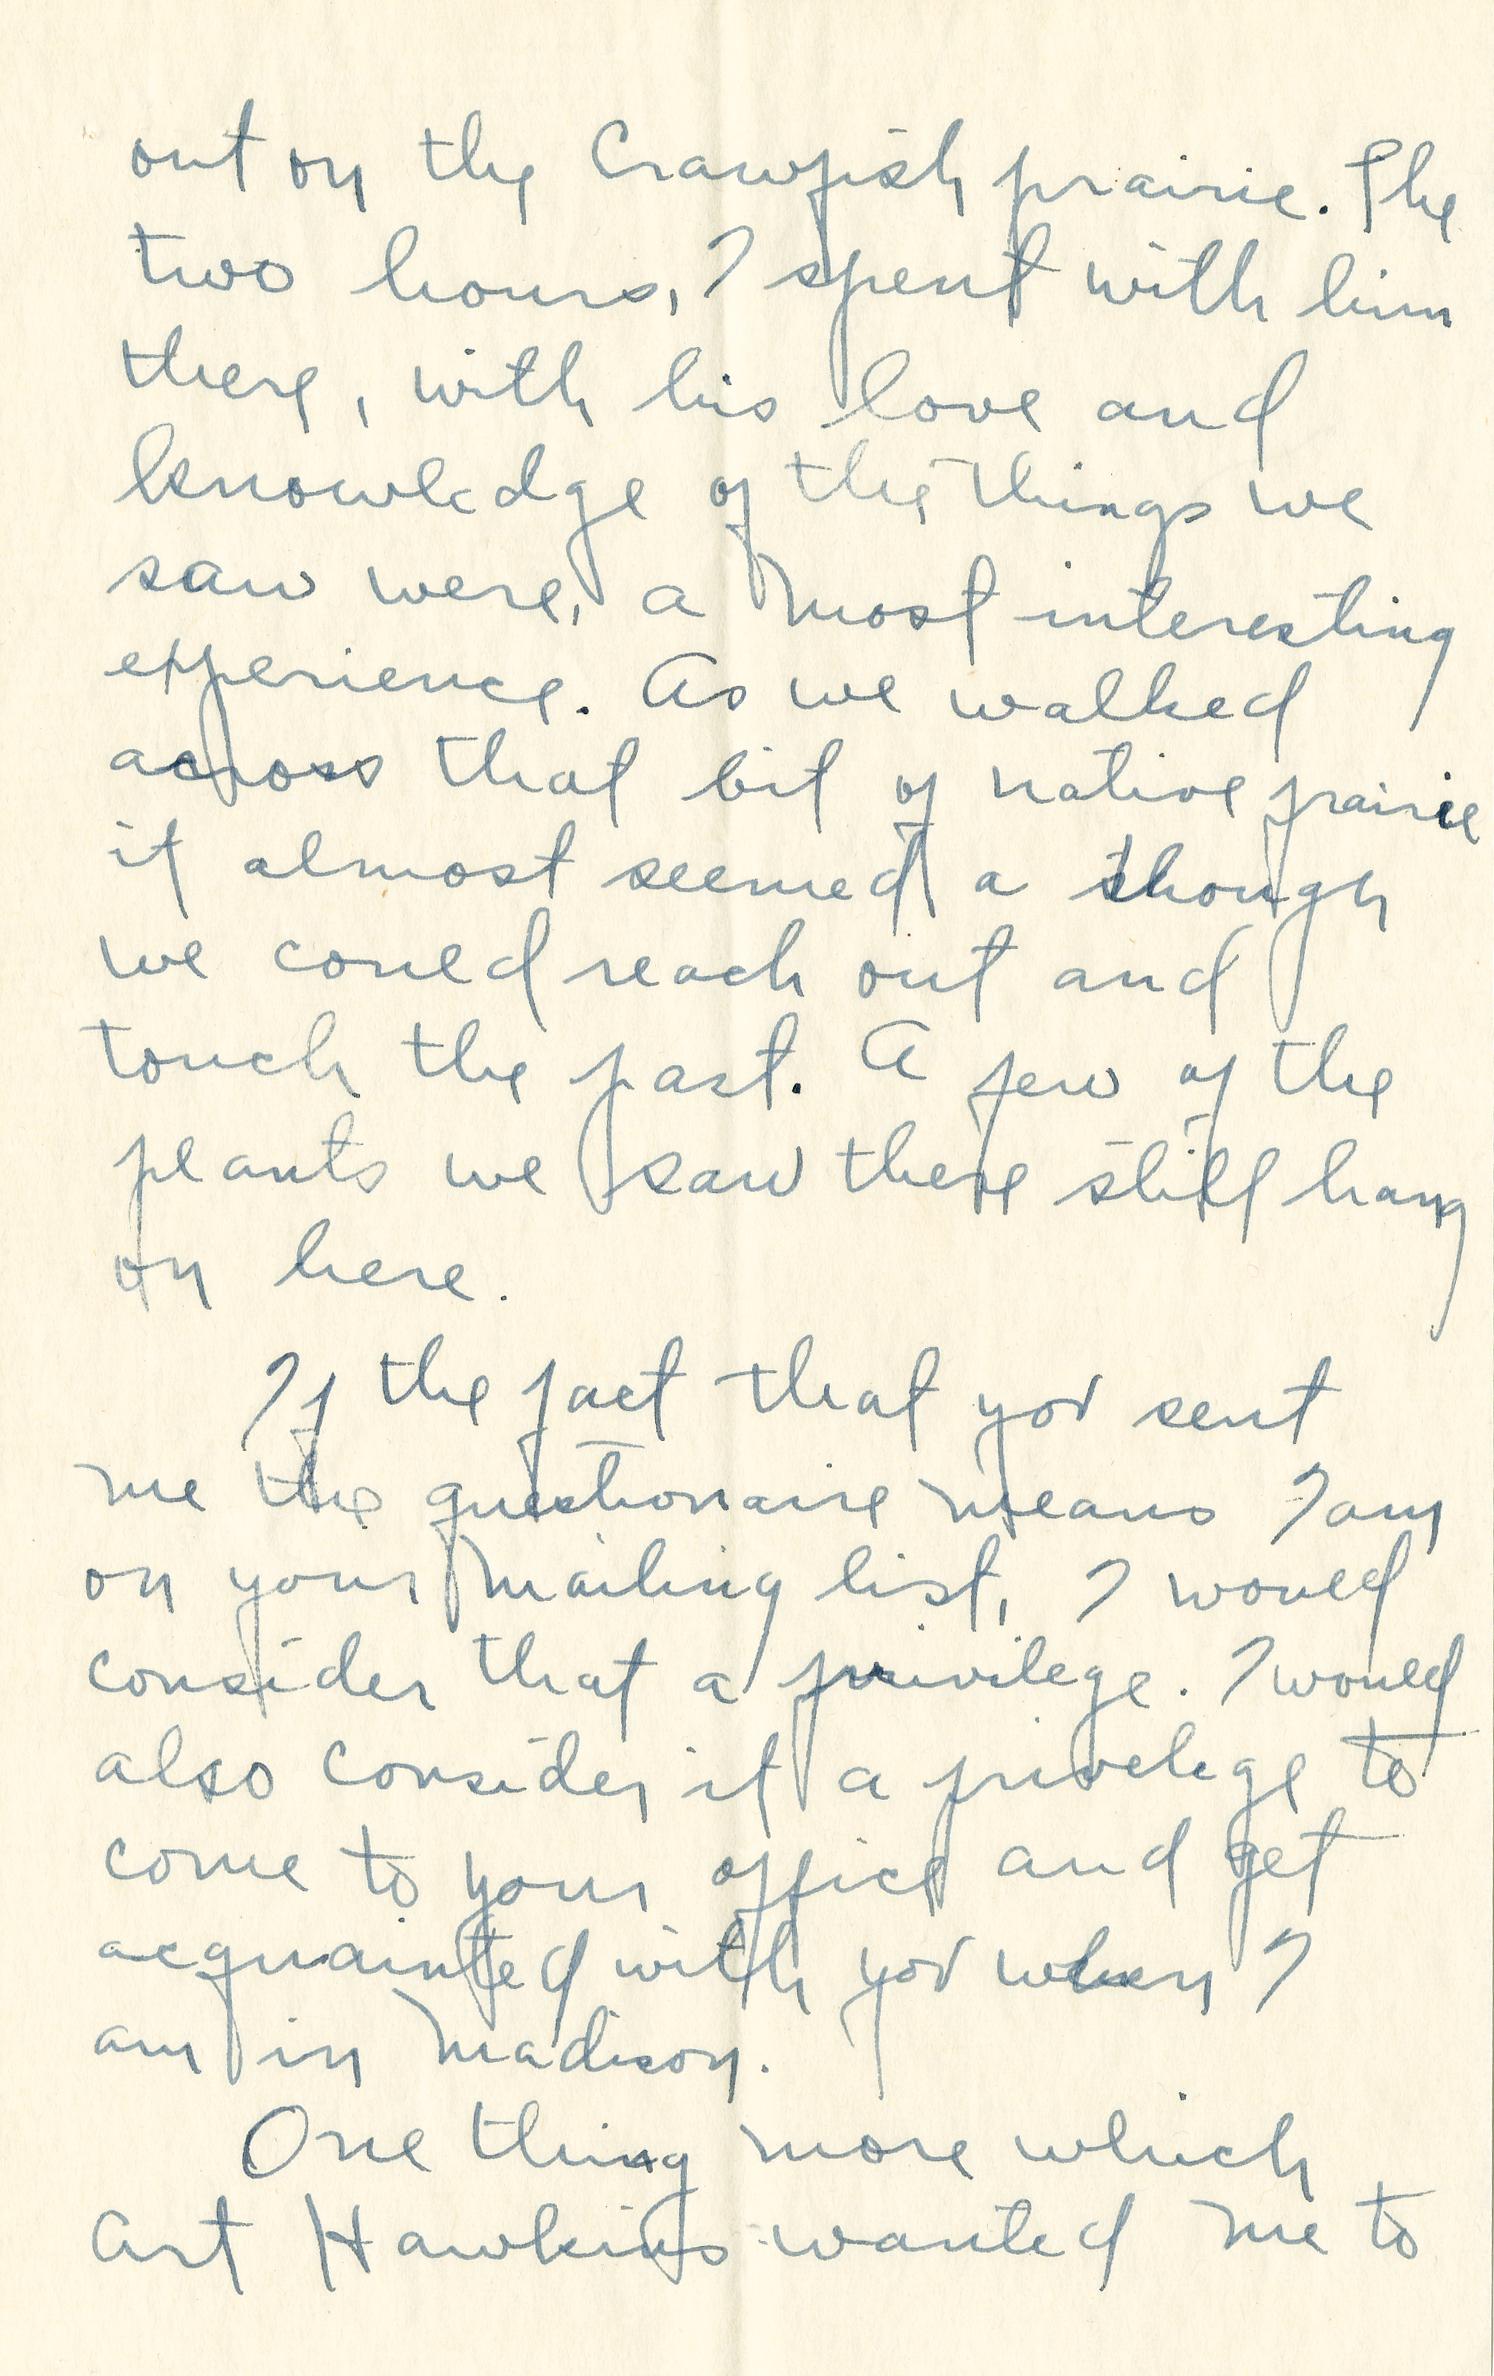 out on the Crawfish prairie. The
two hours, I spent with him
there, with his love and
knowledge of the things we
saw were, a most interesting
experience. As we walked
across that bit of native prairie
it almost seemed a though
we could reach out and
touch the past. A few of the
plants we saw there still hang
on here.
If the fact that you sent
me the questionaire means I am
on your mailing list, I would
consider that a privilege. I would
also consider it a privelege to
come to your office and get
acquainted with you when I
am in Madison.
One thing more which
Art Hawkins wanted me to